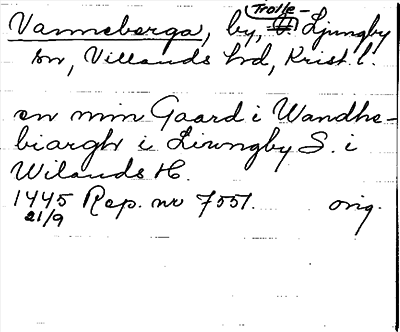 Vanneberga, by, Trolle-Ljungby
sn, Villands hd, Krist. l.
en min Gaard i Wandhe-
biargh i Liwngby S. i
Wilands H.
1445 Rep. nr 7551. orig.
21/9